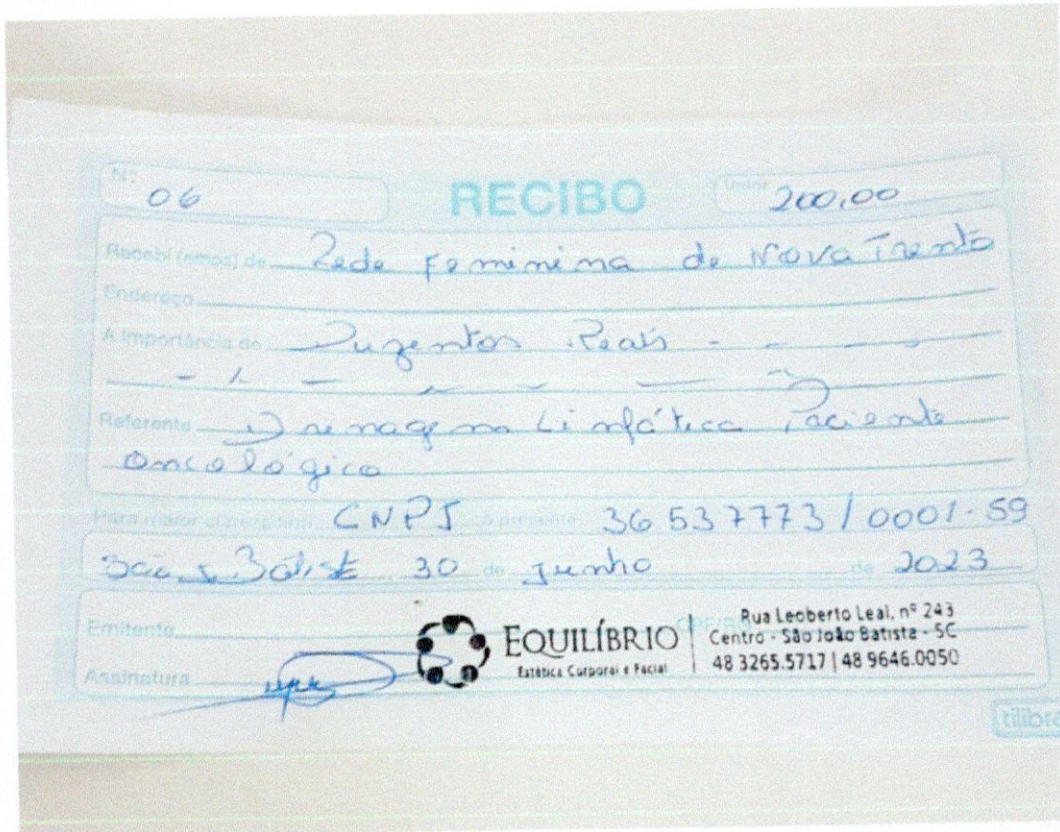 Nº 06 RECIBO Valor 200,00
Recebi (emos) de Rede Feminina de Nova Trento
Endereço
A importância de Duzentos Reais
Referente Drenagem Linfática Paciente
oncológico
Para maior clareza firm CNPJ o presente 36 537773/0001-59
São J Batist 30 de Junho de 2023
Emitente CPF/RG
EQUILÍBRIO
Estética Corporal e Facial
Rua Leoberto Leal, nº 243
Centro - São João Batista - SC
48 3265.5717 | 48 9646.0050
Assinatura
tilibra